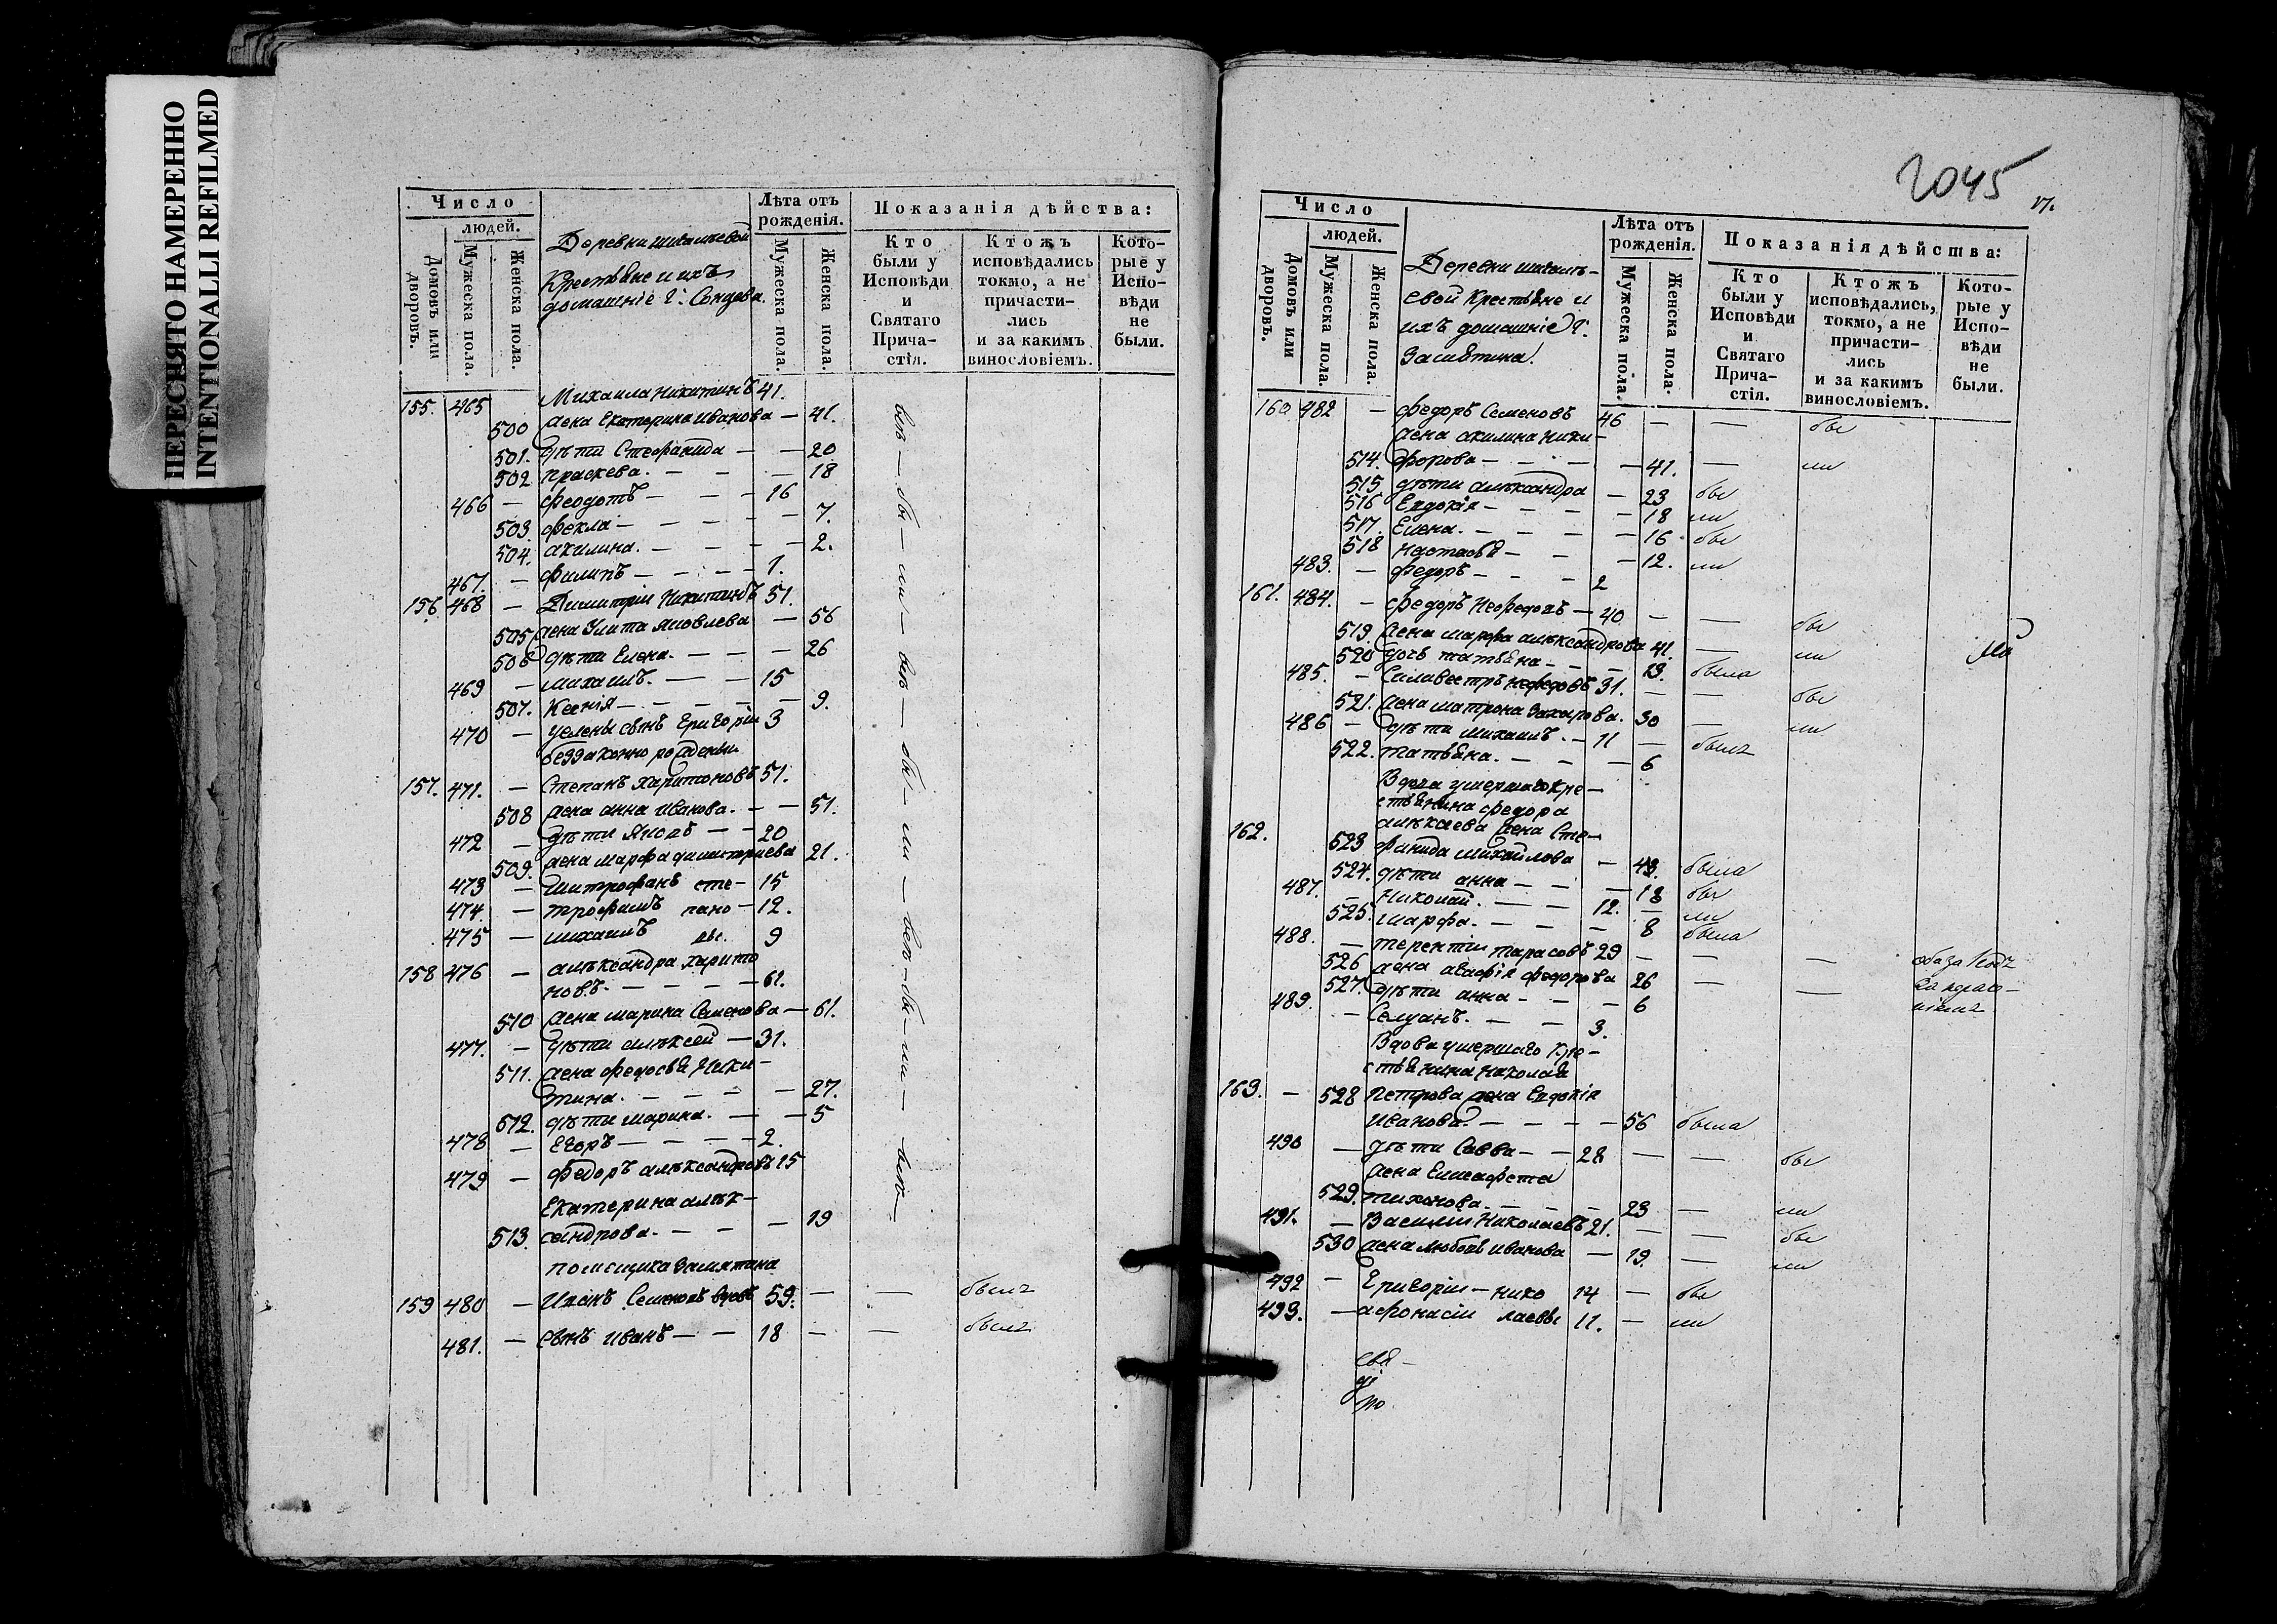 НЕРЕСНЯТО НАМЕРЕННО
INTENTIONALLI REFILMED
Число
людей.
Домовъ или дворовъ.
Мужеска пола.
Женска пола.
Деревни
Крестьяне и ихъ
домашніе г. Сонцева.
Лѣта отъ рожденія.
Мужеска пола.
Женска пола.
Показанія дѣйства:
Кто были у Исповѣди и Святаго Прича-стія.
Ктожъ исповѣдались токмо, а не причасти-лись и за какимъ винословіемъ.
Кото-рые у Испо-вѣди не были.
155. 465 Михаила Никитинъ 41.
500 жена Екатерина Иванова — 41.
501. дѣти Стефанида — — 20
502 праскева. — — — 18
466 — феодотъ — — — 16
503. фекла — — — — — 7.
504. акилина. — — — — 2.
467. — филипъ — — — — 1.
156 468 — Димитрии Никитинъ 51.
505 жена Улита Яковлева — 56
506 дѣти Елена. — — — 26
469 — михаилъ. — — 15
507. Ксенія — — — — — 9.
470 — Уелены сынъ Григорiи 3
беззаконно рожденыи
157. 471. — Степанъ Харитоновъ 51.
508 жена анна Иванова. — — 51.
472 — дѣти Яковъ — — 20
509. жена марфа димитриева 21.
473 — митрофанъ сте — 15
474 — трофимъ пано — 12.
475 — михаилъ вы. 9
158 476 — александра харито
новъ. — — — — 61.
510 жена марина Семенова — 61.
477. — дѣти алексей — 31.
511. жена федосья Ники —
тина. — — — — — 27.
512. дѣти марина. — — 5
478 — Егоръ — — — — 2.
479 — федоръ александровъ 15
Екатерина алек —
513. сандрова. — — — 19
помещика Замятина
159 480 — Иванъ Семеновъ вдовъ 59. — — былъ
481. — сынъ иванъ — — 18 — — былъ
2045
17.
Число
людей.
Домовъ или дворовъ.
Мужеска пола.
Женска пола.
Деревни
евой Крестьяне и
ихъ домашніе г.
Замятина.
Лѣта отъ рожденія.
Мужеска пола.
Женска пола.
Показанія дѣйства:
Кто были у Исповѣди и Святаго Прича-стія.
Ктожъ исповѣдались, токмо, а не причасти-лись и за какимъ винословіемъ.
Кото-рые у Испо-вѣди не были.
160 482 — федоръ Семеновъ 46 — — бы
жена акилина ники —
514. форова — — — — 41. — ли
515 дѣти александра — 23 бы
516 Евдокія — — — — 18 ли
517. Елена. — — — — 16 бы
518 Настасья — — — 12. ли
483. — федоръ — — — 2
161. 484. — федоръ Нефедовъ — 40 — — бы
519. жена марфа александрова 41. — ли
520 дочь татьяна — — — 13. была
485. — Силивестръ нефедовъ 31. — — бы
521. жена матрона Захарова. 30 — ли
486 — дѣти михаилъ. — 11 — былъ
522. татьяна. — — — 6
Вдова умершаго кре —
стьянина федора
алексеева жена Сте —
162. 523 фанида михайлова — 43. была
524. дѣти анна — — — 18 бы
487. — Николай. — — 12. — ли
525. марфа. — — — 8 была
488. — терентіи тарасовъ 29 — —
526 жена агафія федорова 26 — —
527. дѣти анна — — — 6
489. — Селуанъ. — — 3.
Вдова умершаго кре —
стьянина николая
163. — 528 петрова жена Евдокія
Иванова — — — — 56 была
490 — дѣти Савва — — 28 — — бы
жена Елисафета
529. тихонова. — — — 23 — ли
491. — Василии Николаевъ 21. — — бы
530 жена любовь иванова — 19. — ли
492 — Григоріи — нико 14 — бы
493. — афонасіи лаевы 11. — ли